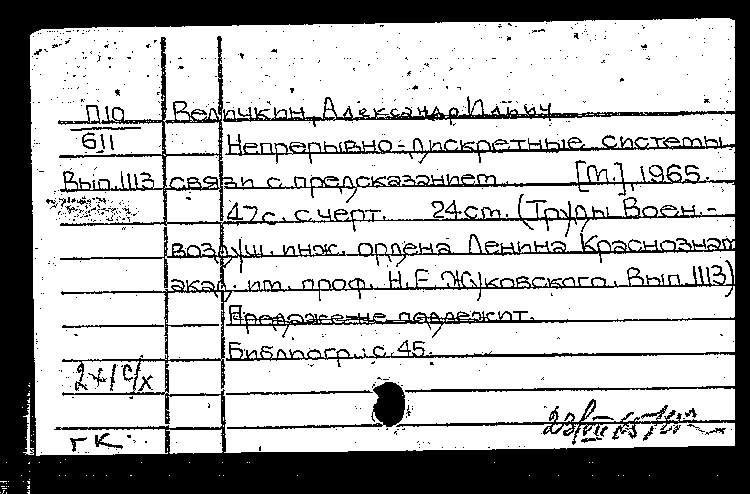 П10 Величкин, Александр Ильич
611 Непрерывно-дискретные системы
Вып.1113 связи с предсказанием [М.], 1965.
47с. с черт. 24см. (Труды Воен.-
воздуш. инж. ордена Ленина Краснознам
акад. им. проф. Н.Е.Жуковского. Вып.1113)
Продаже не подлежит.
Библиогр.: с.45.
2+1 с/х
гк.